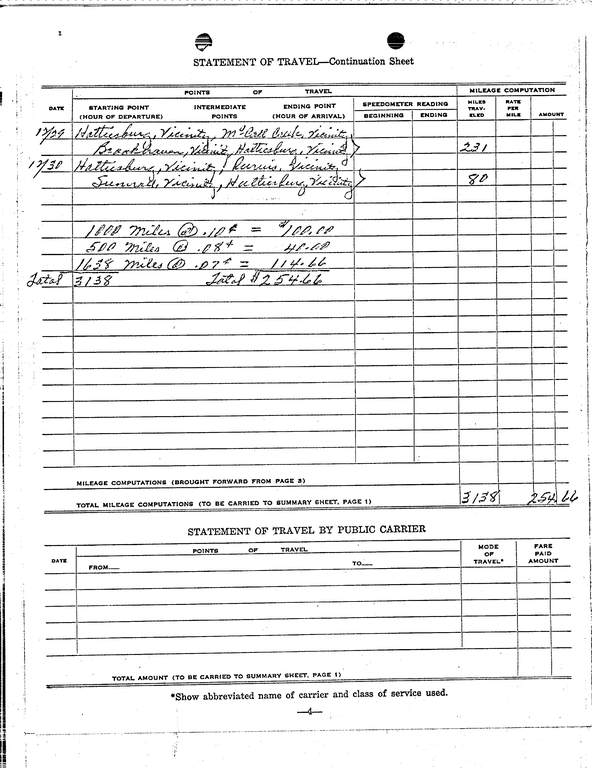 1
STATEMENT OF TRAVEL—Continuation Sheet
POINTS OF TRAVEL MILEAGE COMPUTATION
DATE STARTING POINT (HOUR OF DEPARTURE) INTERMEDIATE POINTS ENDING POINT (HOUR OF ARRIVAL) SPEEDOMETER READING BEGINNING ENDING MILES TRAV- ELED RATE PER MILE AMOUNT
12/29 Hattiesburg, Vicinity, McCall Creek, Vicinity,
Brookhaven, Vicinity, Hattiesburg, Vicinity 231
12/30 Hattiesburg, Vicinity, Purvis, Vicinity,
Sumrall, Vicinity, Hattiesburg, Vicinity 80
1000 Miles @ .10¢ = $100.00
500 Miles @ .08¢ = 40.00
1638 Miles @ .07¢ = 114.66
Total 3138 Total $254.66
MILEAGE COMPUTATIONS (BROUGHT FORWARD FROM PAGE 3)
TOTAL MILEAGE COMPUTATIONS (TO BE CARRIED TO SUMMARY SHEET, PAGE 1) 3138 254.66
STATEMENT OF TRAVEL BY PUBLIC CARRIER
DATE POINTS OF TRAVEL MODE OF TRAVEL* FARE PAID AMOUNT
FROM— TO—
TOTAL AMOUNT (TO BE CARRIED TO SUMMARY SHEET, PAGE 1)
*Show abbreviated name of carrier and class of service used.
—4—